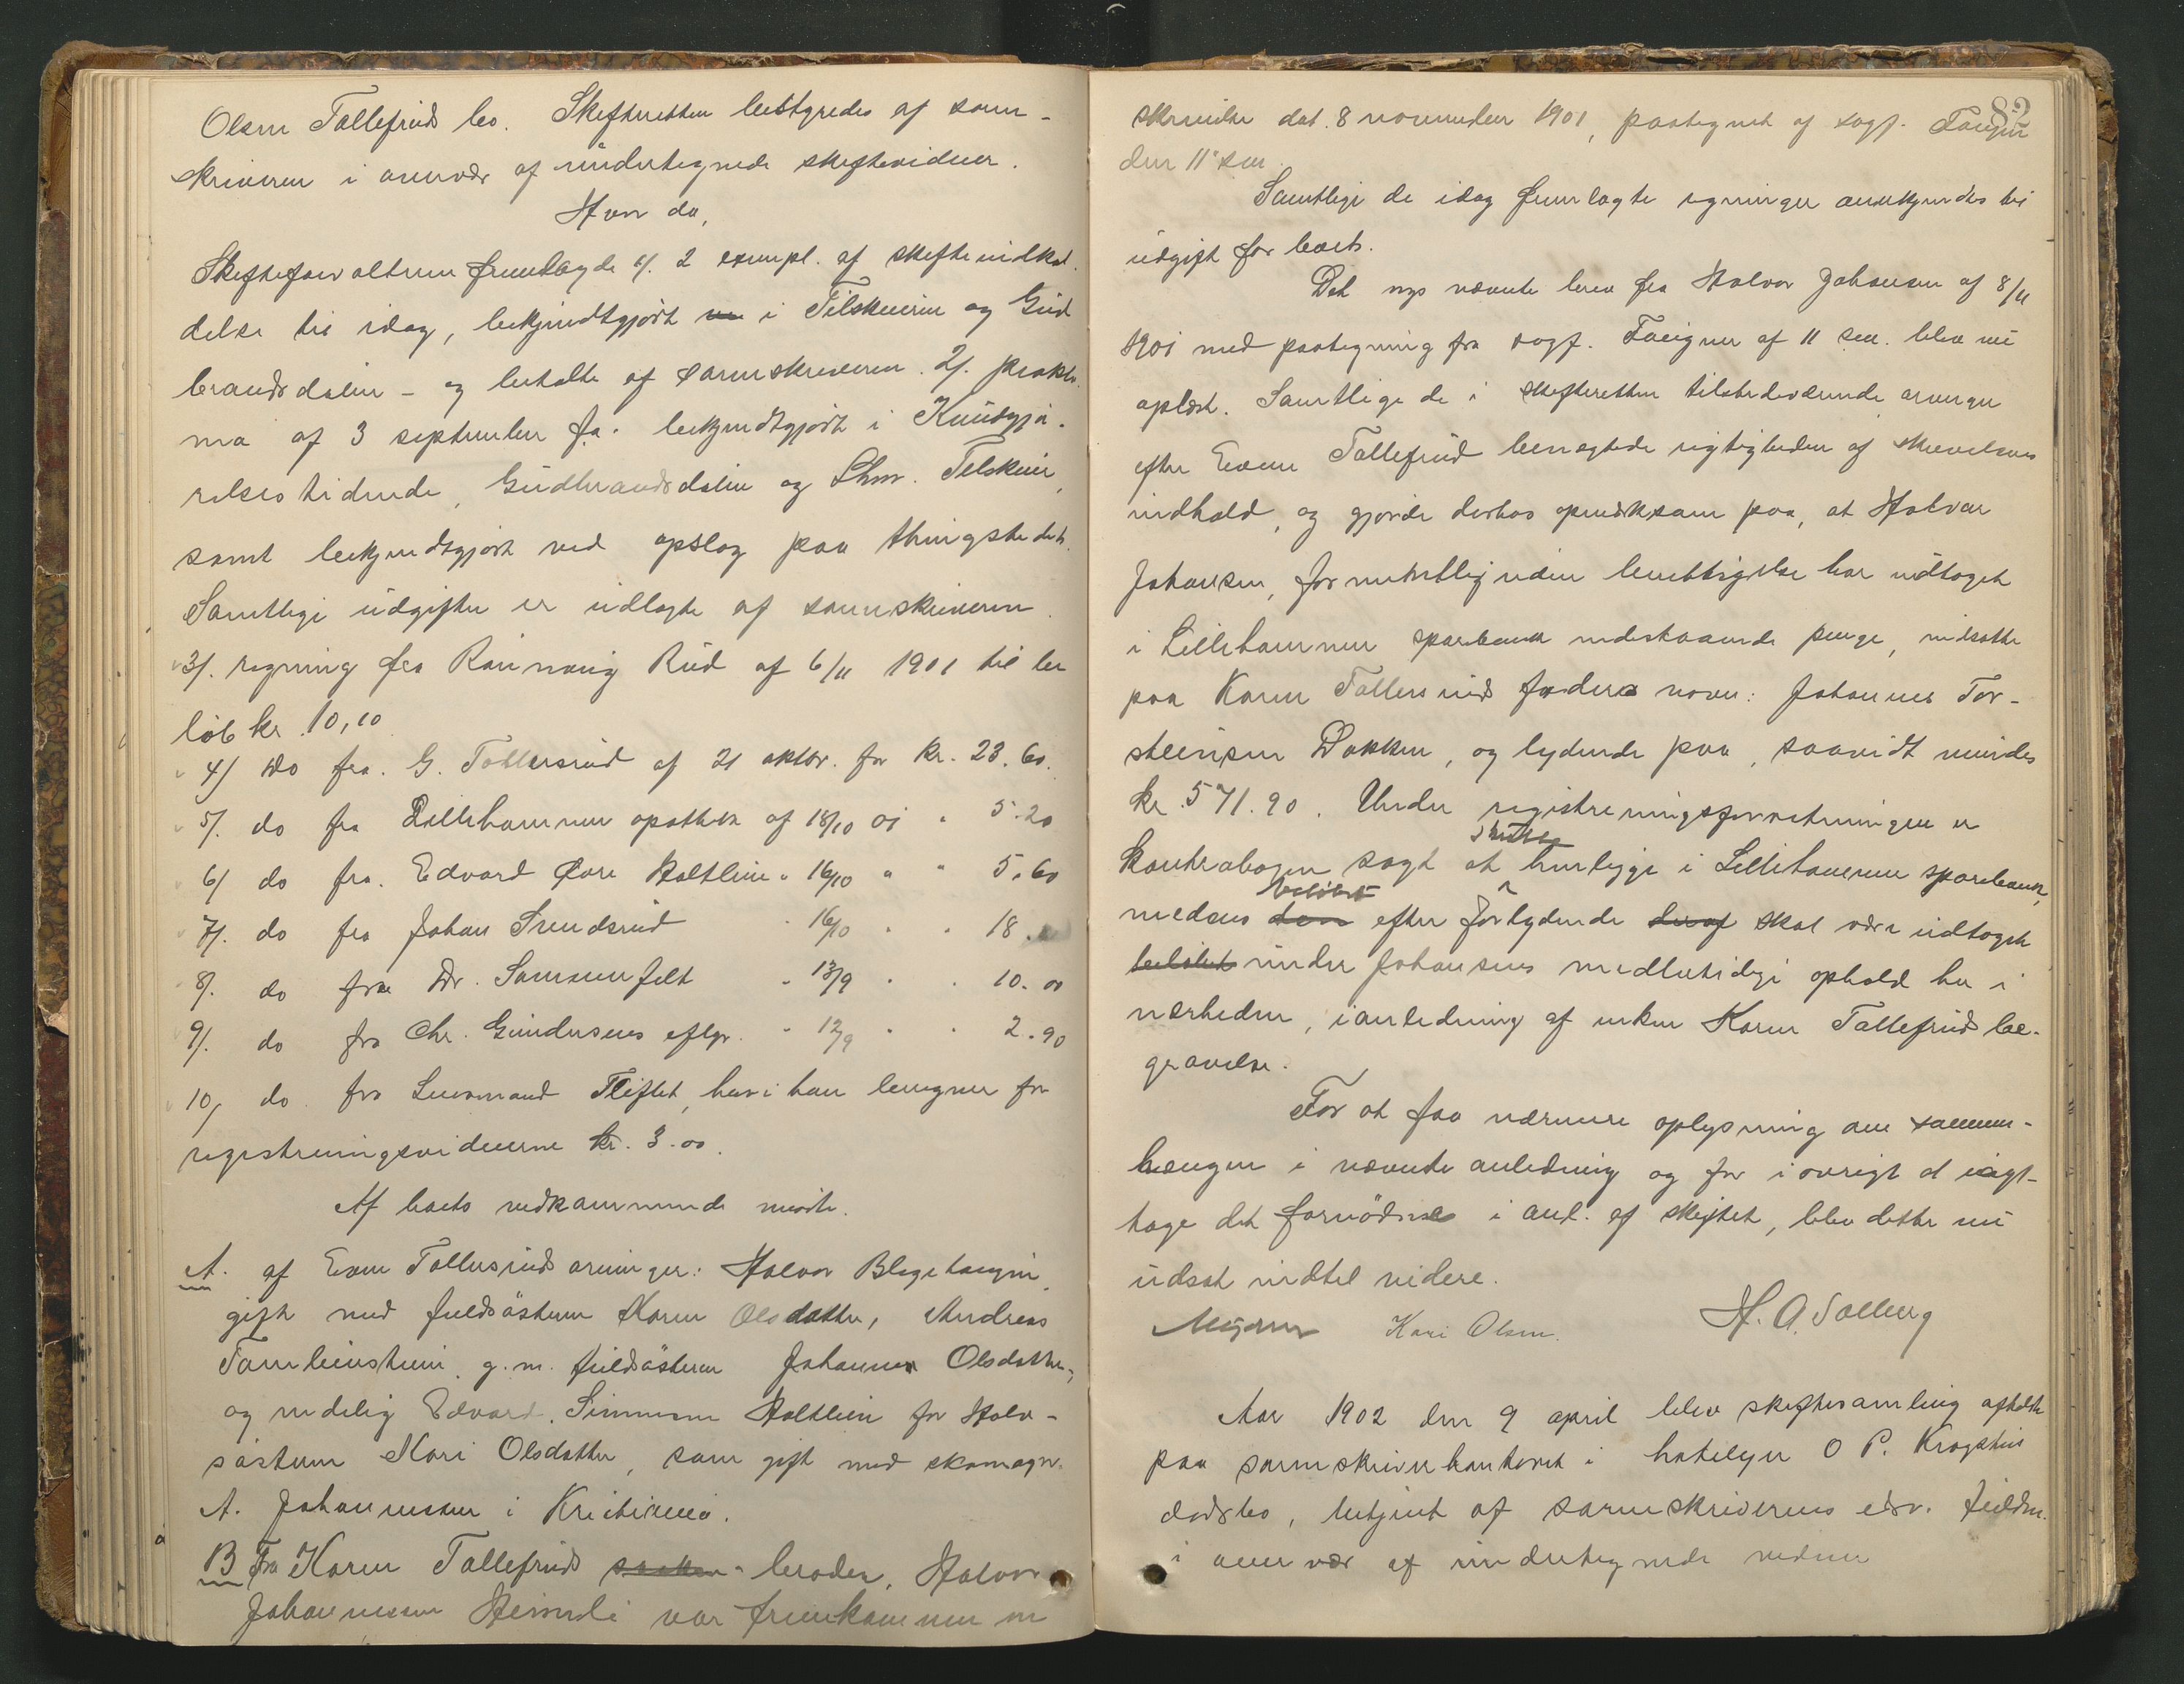 Olsen Tollefruds bo. Skifteretten bestyredes af soren-
skriveren i overvær af undertegnede skiftevidner.
Hvor da,
Skifteforvalteren fremlagde 1/. 2 exempl. af skifteindkal-
delse til idag, bekjendtgjort i Tilskueren og Gud
brandsdølen - og betalte af sorenskriveren. 2/. prokla
ma af 3 september f.a. bekjendtgjort i Kundgjø-
relsestidende, Gudbrandsdølen og Lhmr. Tilskuer,
samt bekjendtgjort ved opslag paa thingstedet.
Samtlige udgifter er udlagte af sorenskriveren.
3/. regning fra Rønnaug Rud af 6/11 1901 til be
løb kr. 10,10
4/ do fra. G. Tollersrud af 21 oktbr. for kr. 23.60.
5/. do fra Lillehammer apothek af 18/10 01 " 5.20
6/ do fra. Edvard Øvre Holtlien " 16/10 " " 5.60
7/. do fra Johan Svendsrud " 16/10 " " 18.
8/. do fra Dr. Sømmenfelt " 13/9 " " 10.00
9/. do fra Chr. Gundersens eftgr. " 12/9 " " 2.90
10/ do fra Lensmand Fliflet, hvori han beregner for
registreringsvidnerne kr. 3.00.
Af boets vedkommende mødte.
A. af Even Tollersruds arvinger: Halvor Blegehaugen
gift med fuldsøsteren Karen Olsdatter, Andreas
g.m. fuldsøsteren Johanna Olsdatter,
og endelig Edvard Simensen Holtlien for Halv-
søsteren Kari Olsdatter, som gift med skomagr.
A. Johannessen i Kristiania.
B Fra Karen Tollefruds søsken- broder, Halvor
Johannessen var fremkommen en
82
skrivelse dat. 8 november 1901, paategnet af sagf. Faaigen
den 11 sm.
Samtlige de idag fremlagte regninger anerkjendes til
udgift for boet.
Det nys nævnte brev fra Halvor Johansen af 8/11
1901 med paategning fra sagf. Faaigen af 11 sm. blev nu
oplæst. Samtlige de i skifteretten tilstedeværende arvinger
efter Even Tollefrud benægtede rigtigheden af skrivelsens
indhold, og gjorde derhos opmærksom paa, at Halvor
Johansen, formentlig uden berettigelse har udtaget
i Lillehammer sparebank indestaaende penge, indsatte
paa Karen Tollersruds faders navn: Johannes Tor-
steinsen Bakken, og lydende paa, saavidt mindes
kr. 571.90. Under registreringsforretningen er
Kontrabogen sagt at skulle henligge i Lillehammer sparebank,
medens den beløbet efter forlydende deraf skal være udtaget
beløbet under Johansens midlertidige ophold her i
nærheden, i anledning af enken Karen Tollefruds be-
gravelse.
For at faa nærmere oplysning om sammen-
hængen i nævnte anledning og for iøvrigt at iagt-
tage det fornødne i anl. af skiftet, blev dette nu
udsat indtil videre.
Kari Olsen. H. A. Solberg
Aar 1902 den 9 april blev skiftesamling afholdt
paa sorenskriverkontoret i hotelejer O P. Krogstius
dødsbo, betjent af sorenskriverens edsv. fuldm.
i overvær af undertegnede vidner